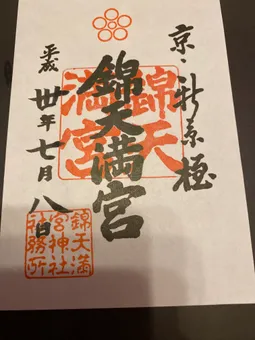 京・新京極
錦天満宮
錦天
満宮
平成卅年七月八日
錦天満
宮神社
社務所